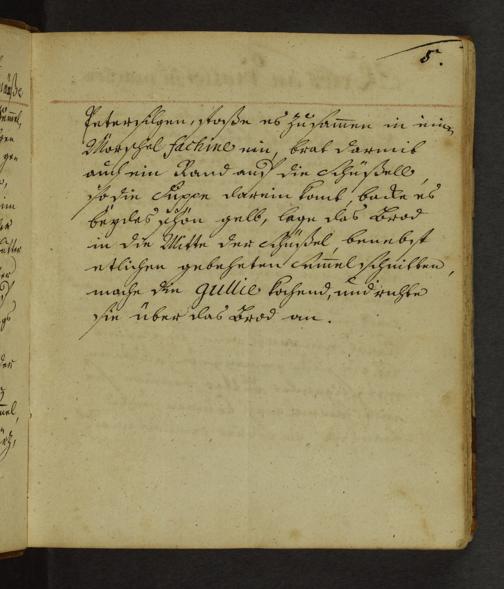 5.
Petersilgen, stoße es zusamen in ein
Morschel fachine ein, brat darmit
auch ein Rand auf die Schüßell,
so die Suppe darein komt, backe es
beydes schön gelb, lege das Brod
in die Mitte der Schüßel, benebst
etlichen gebeheten Semel schnitten,
mache die gullie kochend, und richte
sie über das Brod an.